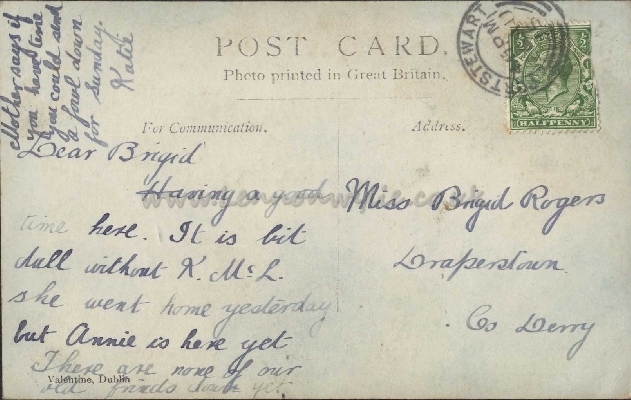 Mother says if
you have time
you could send
a fowl down
for Sunday.
Katie
POST CARD.
Photo printed in Great Britain.
For Communication.
Address.
PORTSTEWART
HALFPENNY
Dear Brigid
Having a good
time here. It is bit
dull without K. McL.
she went home yesterday
but Annie is here yet
There are none of our
old friends yet
Miss Brigid Rogers
Draperstown
Co Derry
Valentine, Dublin